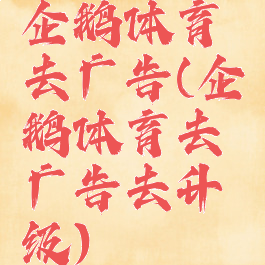 企鹅体育
去广告(企
鹅体育去
广告去升
级)